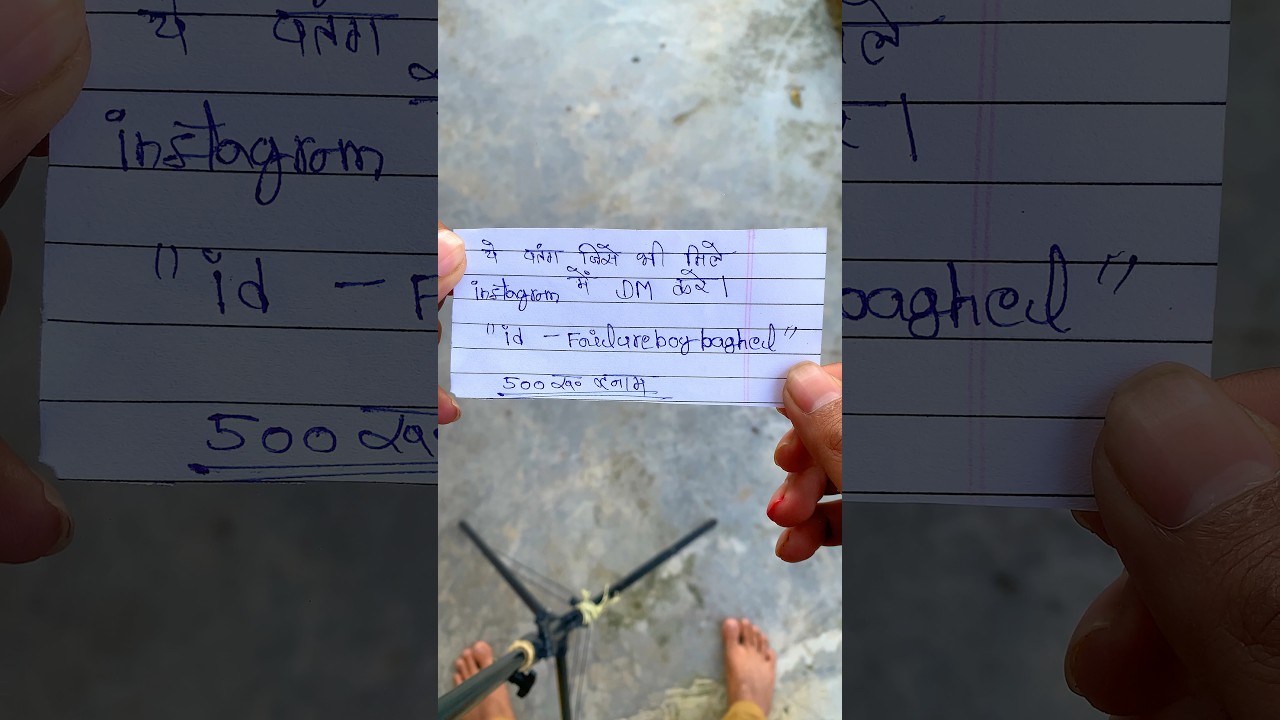 ये पतंग जिसे भी मिले
instagram में DM करे।
"id - Failureboybaghel"
500 रू० इनाम